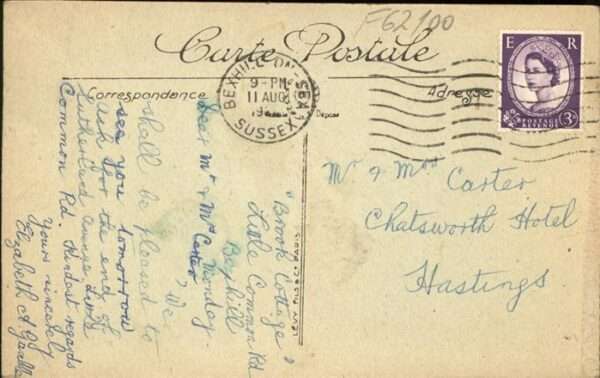 F62/00
Carte Postale
Correspondance
Adresse
E R
POSTAGE REVENUE
3D
BEXHILL-ON-SEA
9-PM
11 AUG
19
SUSSEX
"Brook Cottage"
Little Common Rd
Bexhill
Monday.
Dear Mr & Mrs Carter, We
shall be pleased to
see you tomorrow
ask for the end of
Sutherland Avenue
Common Rd. Kindest regards
Yours sincerely
Elizabeth A
Mr & Mrs Carter
Chatsworth Hotel
Hastings